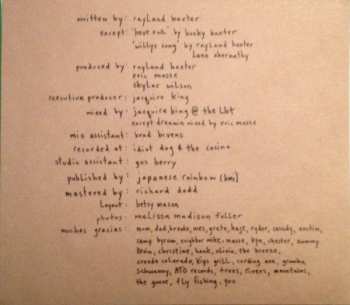 written by: rayland baxter
except: 'hove rok' by bucky baxter
'willys song' by rayland baxter
lane abernathy
produced by: rayland baxter
eric masse
skylar wilson
executive producer: jacquire king
mixed by: jacquire king @ the lbt
except dreamin mixed by eric masse
mix assistant: brad bivens
recorded at: idiot dog & the casino
studio assistant: gus berry
published by: japanese rainbow (bmi)
mastered by: richard dodd
layout: betsy mason
photos: melissa madison fuller
muchas gracias: mom, dad, brooke, wes, grete, haze, ryder, cassidy, austin,
camp byram, neighbor mike, masse, kye, chester, sammy
brian, christine, hank, olivia, the breeze,
creede colorado, kips grill, cording ann, gramma
schwammy, ATO records, trees, rivers, mountains,
the goose, fly fishing, you